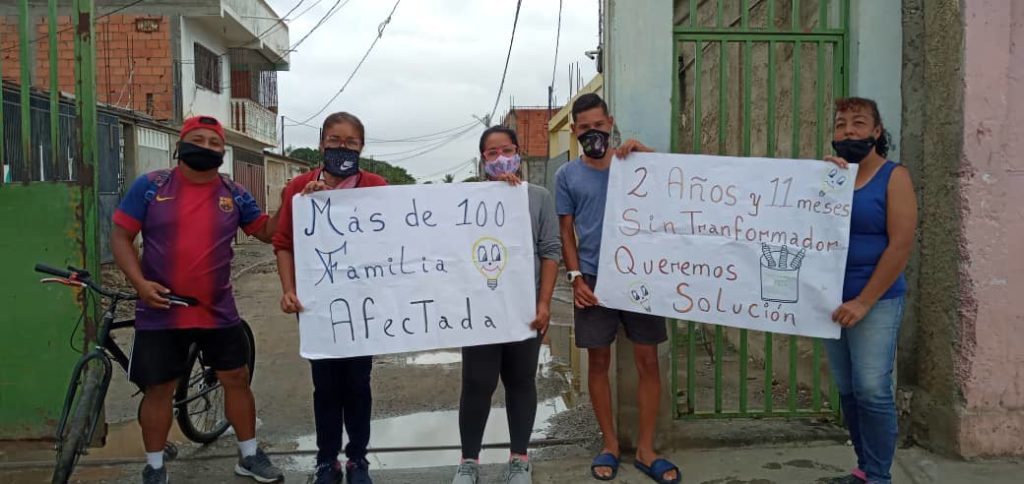 Más de 100
Familia
Afectada
2 Años y 11 meses
Sin Tranformador
Queremos
Solución